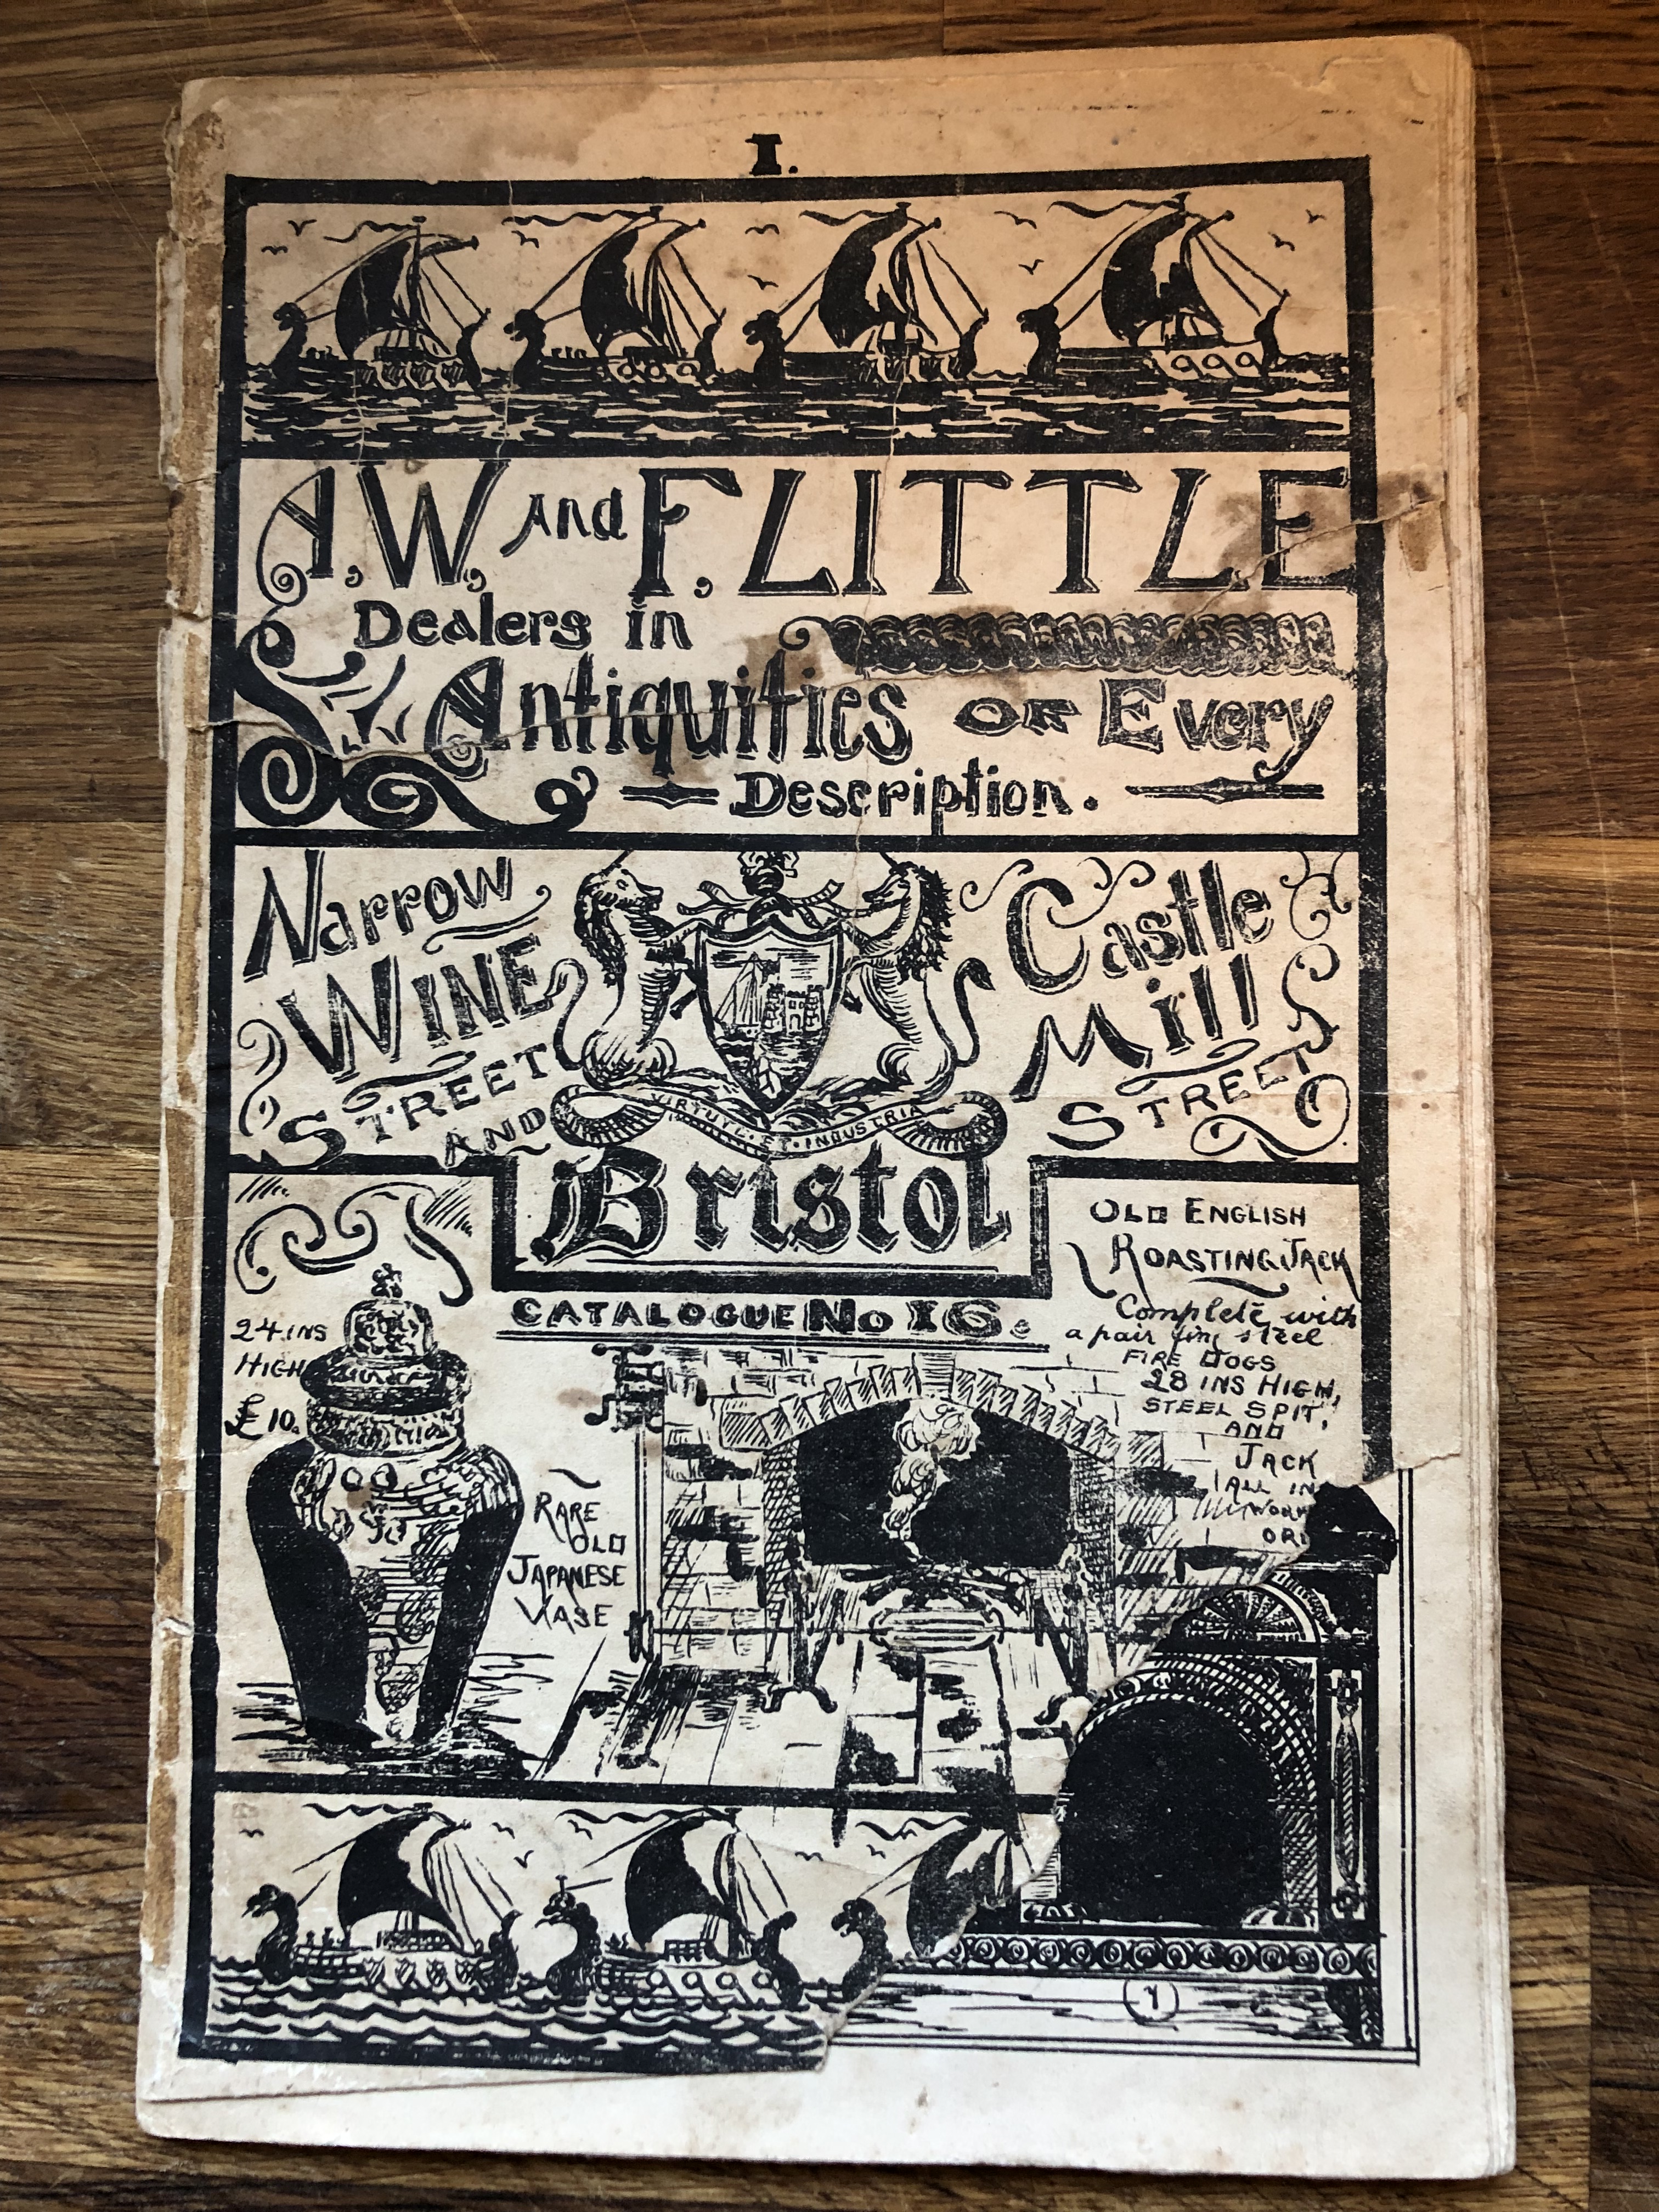 I.
A.W, And F, LITTLE
Dealers in
Antiquities OF Every
Description.
Narrow
WINE
STREET
AND
Castle
Mill
STREET
VIRTUTE · ET · INDUSTRIA
Bristol
CATALOGUE No 16.
24 INS
HIGH
£10.
RARE
OLD
JAPANESE
VASE
OLD ENGLISH
ROASTING JACK
Complete with
a pair fine steel
FIRE DOGS
28 INS HIGH,
STEEL SPIT,
AND
JACK
ALL IN
WORK
OR